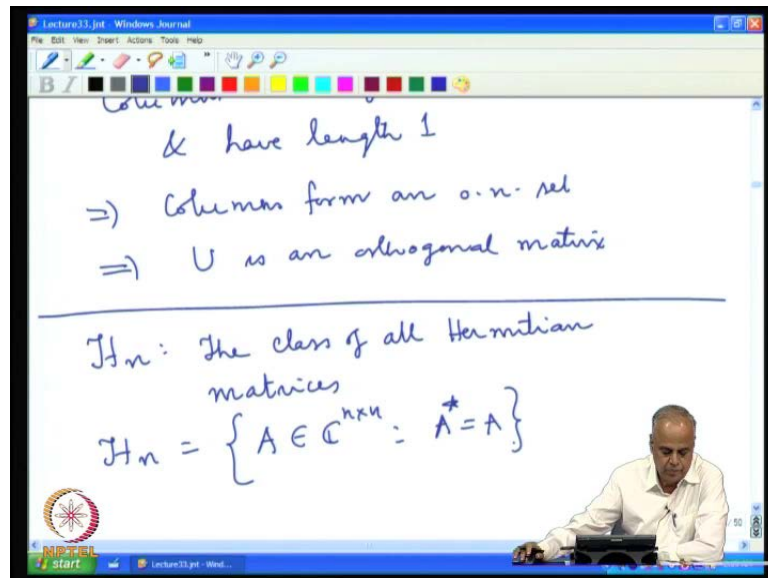 Lecture33.jnt - Windows Journal
File Edit View Insert Actions Tools Help
B I
& have length 1
=> Columns form an o.n. set
=> U is an orthogonal matrix
Hn : The class of all Hermitian
matrices
Hn = { A ∈ ℂ^{n×n} : A* = A }
/ 50
NPTEL
start Lecture33.jnt - Wind...